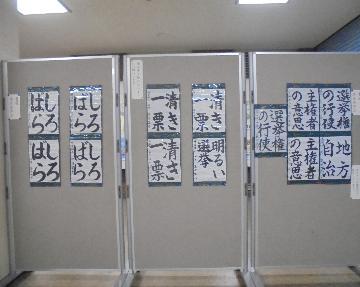 しろ
ばら
しろ
ばら
しろ
ばら
しろ
ばら
清き
一票
清き
一票
明るい
選挙
清き
一票
選挙権
の行使
主権者
の意思
選挙権
の行使
地方
自治
主権者
の意思